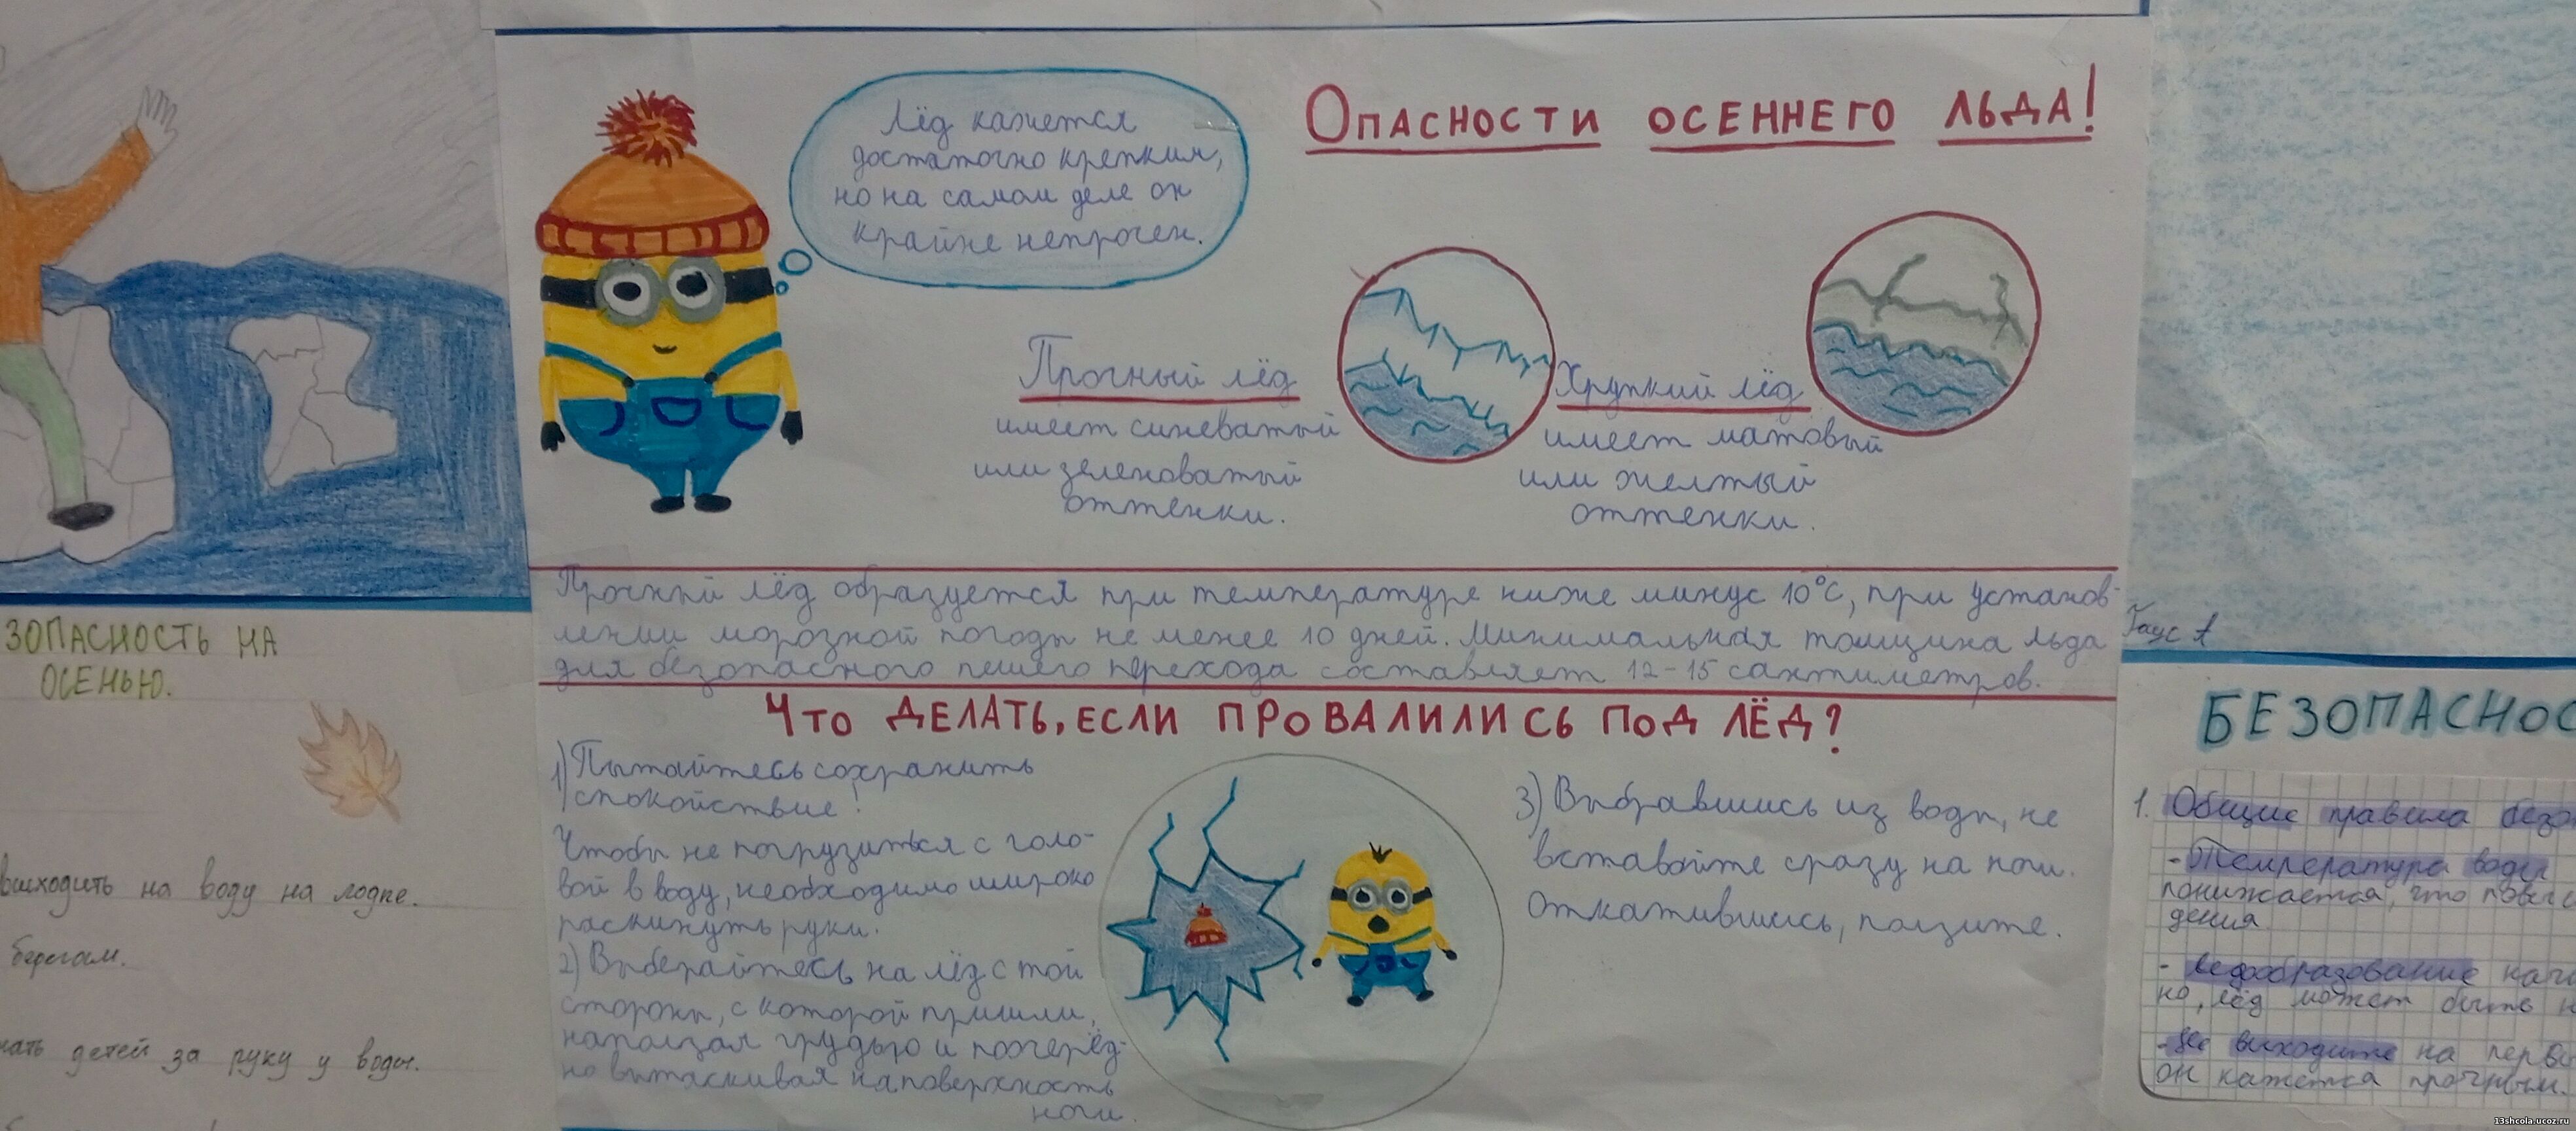 Опасности осеннего льда!
Лёд кажется
достаточно крепким,
но на самом деле он
крайне непрочен.
Прочный лёд
имеет синеватый
или зеленоватый
оттенки.
Хрупкий лёд
имеет матовый
или желтый
оттенки.
Прочный лёд образуется при температуре ниже минус 10°С, при установ-
лении морозной погоды не менее 10 дней. Минимальная толщина льда
для безопасного пешего перехода составляет 12-15 сантиметров.
Что делать, если провалились под лёд?
1) Пытайтесь сохранить
спокойствие!
Чтобы не погрузиться с голо-
вой в воду, необходимо широко
раскинуть руки.
2) Выберайтесь на лёд с той
стороны, с которой пришли,
наползая грудью и поочерёд-
но вытаскивая на поверхность
ноги.
3) Выбравшись из воды, не
вставайте сразу на ноги.
Откатившись, ползите.
ЗОПАСНОСТЬ НА
ОСЕНЬЮ.
выходить на воду на лодке.
берегам.
детей за руку у воды.
Гаус А
БЕЗОПАСНОС
1. Общие правила безо
- Температура воды
понижается, что повыс
дения.
- Ледообразование нач
но, лёд может быть н
- Не выходите на перв
он кажется прочным.
13shcola.ucoz.ru